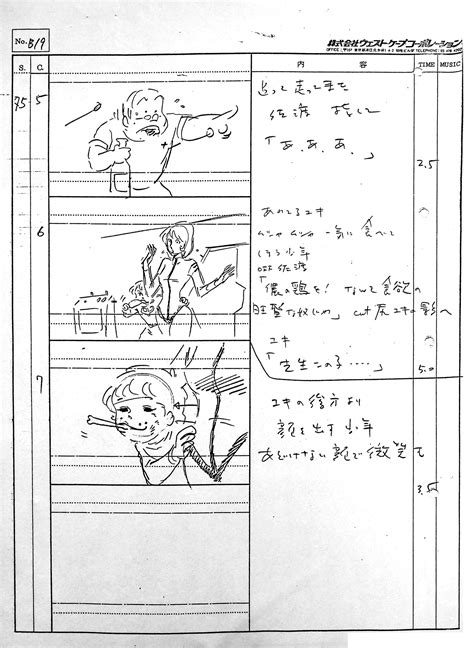 No. B19
株式会社ウェストケープコーポレーション
S. C. 内容 TIME MUSIC
75 5
追って走ってきた
佐渡 指して
「あ、あ、あ、」
2.5
6
あわてるユキ
ムシャ ムシャ 一気に食べて
しまう少年
OFF 佐渡
「儂の鶏を! なんて食欲の
旺盛な奴じゃ」 cut尻 ユキの影へ
ユキ
「先生この子‥‥」
5.0
7
ユキの後方より
顔を出す少年
あどけない顔で微笑む
3.5